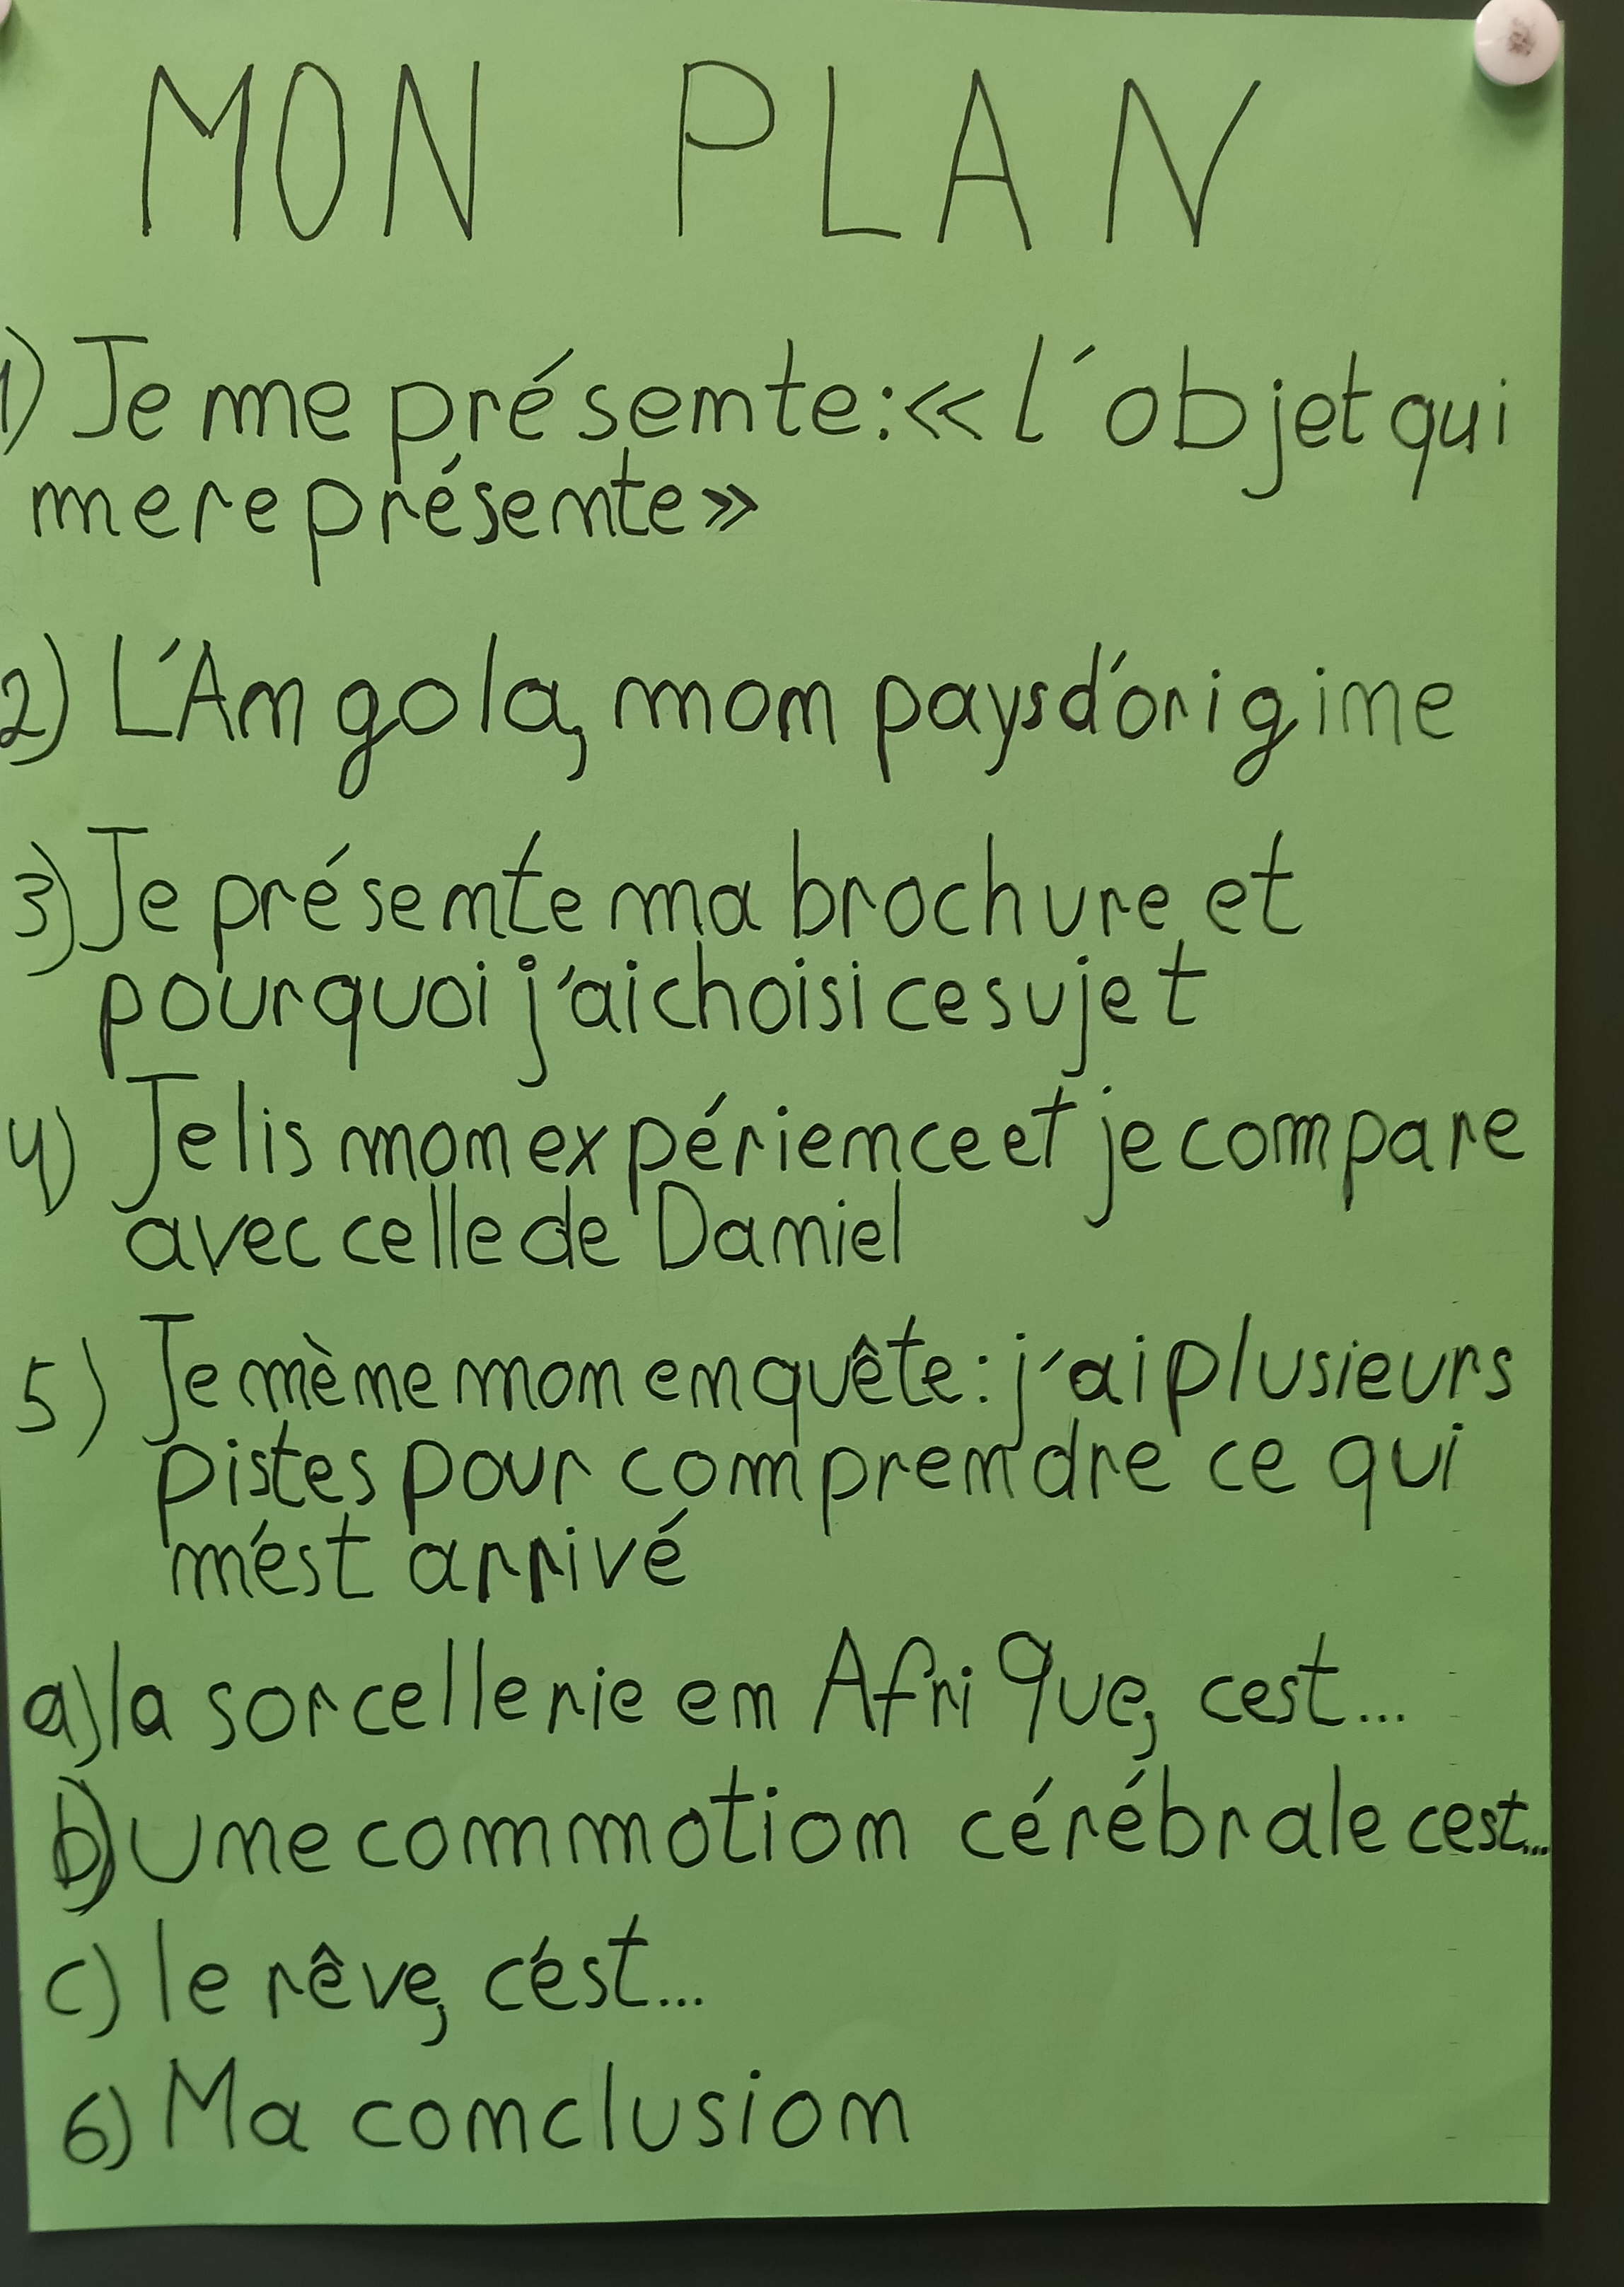 MON PLAN
1) Je me présente: « l'objet qui
me représente »
2) L'Angola, mon pays d'origine
3) Je présente ma brochure et
pourquoi j'ai choisi ce sujet
4) Je lis mon expérience et je compare
avec celle de Daniel
5) Je mène mon enquête: j'ai plusieurs
pistes pour comprendre ce qui
m'est arrivé
a) la sorcellerie en Afrique, cest...
b) Une commotion cérébrale cest...
c) le rêve, c'est...
6) Ma conclusion